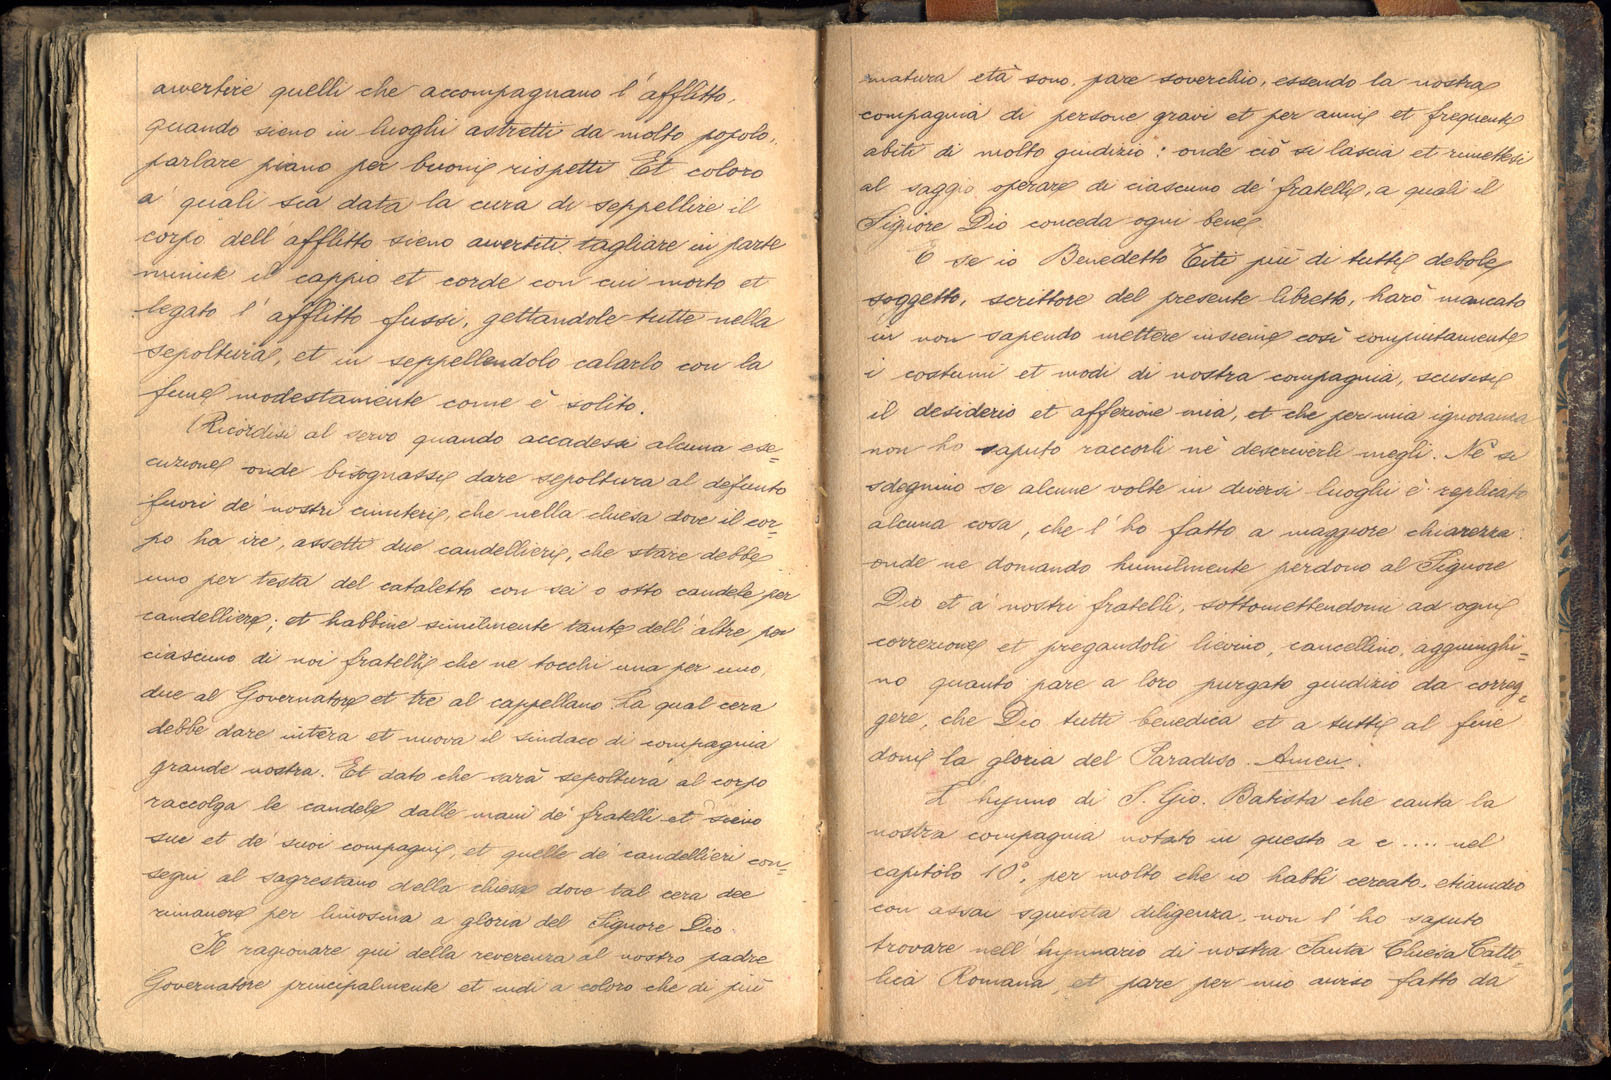 avvertire quelli che accompagnano l'afflitto,
quando sieno in luoghi astretti da molto popolo,
parlare piano per buoni rispetti Et coloro
a' quali sia data la cura di seppellire il
corpo dell'afflitto sieno avvertiti tagliare in parte
minute il cappio et corde con cui morto et
legato l'afflitto fussi, gettandole tutte nella
sepoltura, et in seppellendolo calarlo con la
fune modestamente come è solito.
Ricordisi al servo quando accadessi alcuna ese=
cuzione onde bisognassi dare sepoltura al defunto
fuori de' nostri cimiteri, che nella chiesa dove il cor=
po ha ire, assetti due candellieri, che stare debbe
uno per testa del cataletto con sei o otto candele per
candelliere; et habbine similmente tante dell'altre per
ciascuno di noi fratelli che ne tocchi una per uno,
due al Governatore et tre al cappellano. La qual cera
debbe dare intera et nuova il sindaco di compagnia
grande nostra. Et dato che sarà sepoltura al corpo
raccolga le candele dalle mani de' fratelli et sieno
sue et de' suoi compagni, et quelle de' candellieri con=
segni al sagrestano della chiesa dove tal cera dee
rimanere per limosina a gloria del Signore Dio.
Il ragionare qui della reverenza al nostro padre
Governatore principalmente et indi a coloro che di più
matura età sono, pare soverchio, essendo la nostra
compagnia di persone gravi et per anni et frequenti
abiti di molto giudizio: onde ciò si lascia et rimettesi
al saggio operare di ciascuno de' fratelli, a quali il
Signore Dio conceda ogni bene.
E se io Benedetto Titi più di tutti debole
soggetto, scrittore del presente libretto, harò mancato
in non sapendo mettere insieme così compiutamente
i costumi et modi di nostra compagnia, scusisi
il desiderio et affezione mia, et che per mia ignoranza
non ho saputo raccorli nè descriverli megli. Nè si
sdegnino se alcune volte in diversi luoghi è replicato
alcuna cosa, che l'ho fatto a maggiore chiarezza:
onde ne domando humilmente perdono al Signore
Dio et a' nostri fratelli, sottomettendomi ad ogni
correzione et pregandoli lievino, cancellino, aggiunghi=
no quanto pare a loro purgato giudizio da correg=
gere, che Dio tutti benedica et a tutti al fine
doni la gloria del Paradiso. Amen.
L'hymno di S. Gio. Batista che canta la
nostra compagnia notato in questo a c .... nel
capitolo 10°, per molto che io habbi cercato, etiamdio
con assai squisita diligenza, non l'ho saputo
trovare nell'hymnario di nostra Santa Chiesa Catto=
lica Romana, et pare per mio avviso fatto da